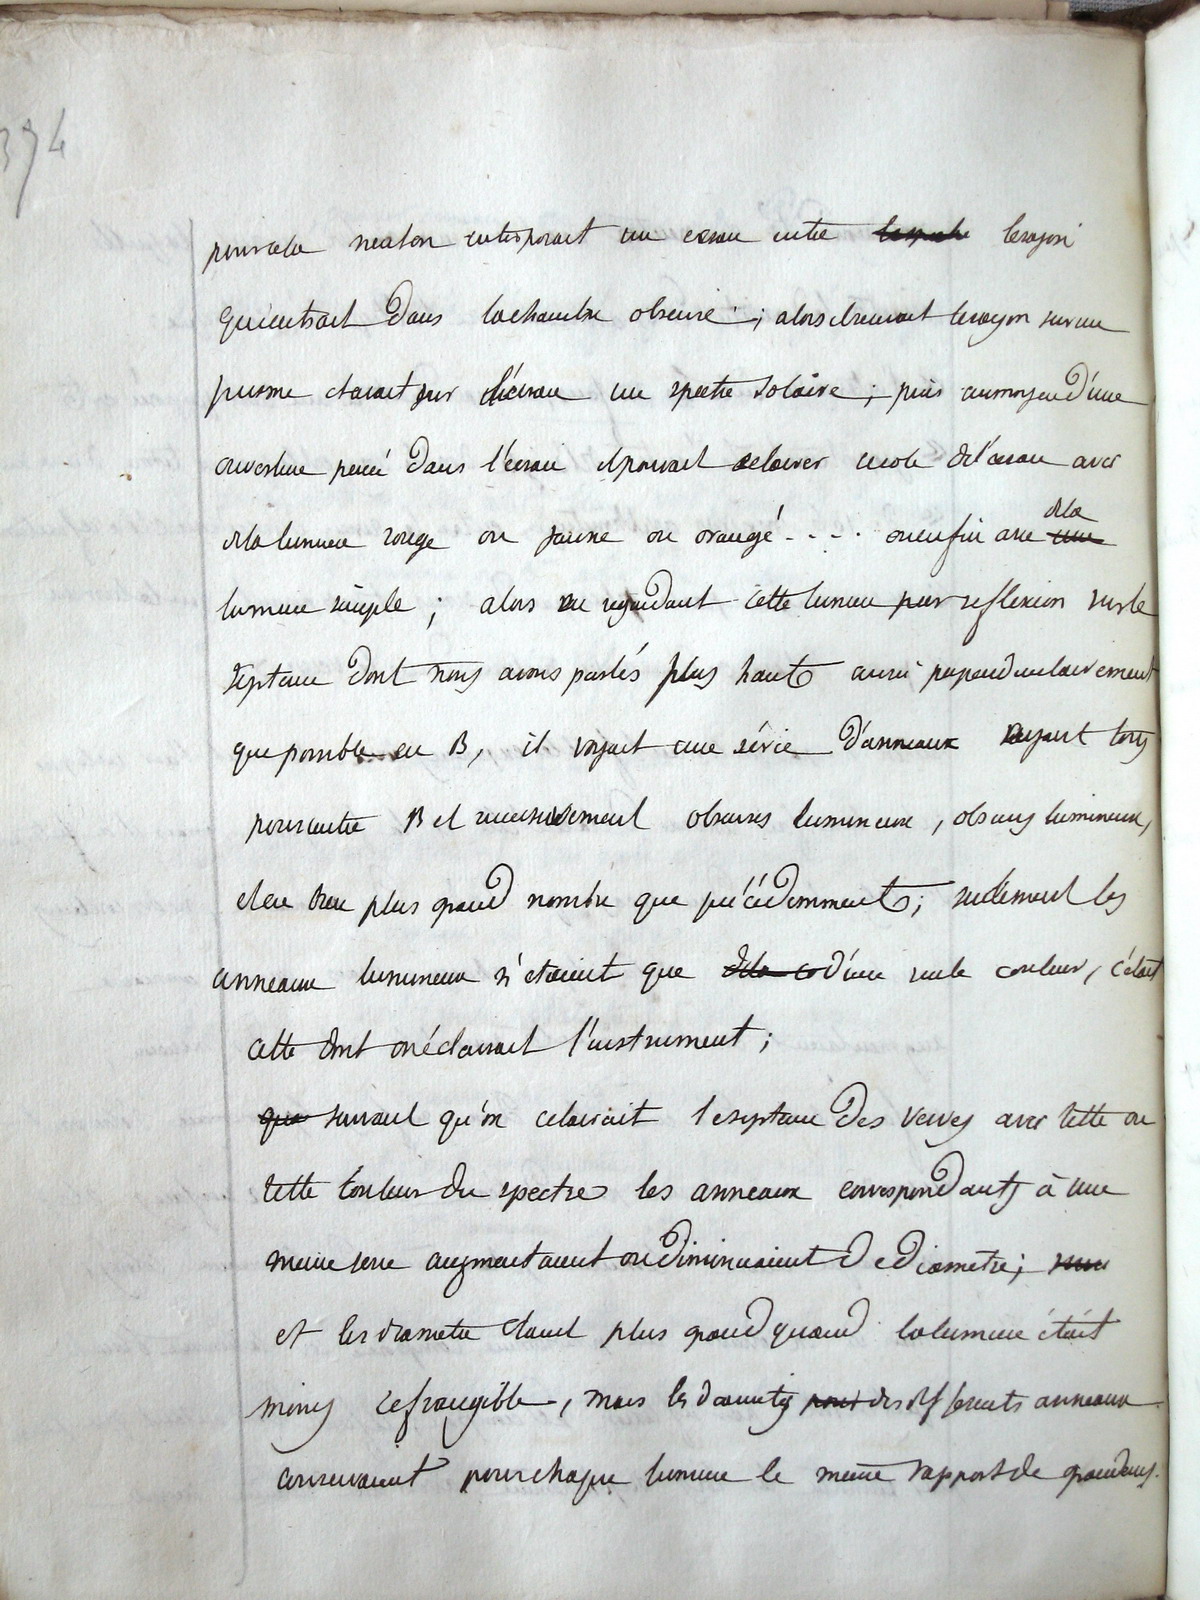 374
pour cela newton interposait un ecran entre le rayon
qui entrait dans la chambre obscure ; alors il recevait le rayon sur un
prisme et avait sur l'écran un spectre solaire ; puis au moyen d'une
ouverture percée dans l'écran il pouvait eclairer de l'ecran avec
de la lumiere rouge ou jaune ou orangé - - - . ou enfin avec de la ~~une~~
lumiere simple ; alors en regardant cette lumiere par reflexion sur le
septeme dont nous avons parlés plus haut aussi perpendiculairement
que possible en B, il voyait une série d'anneaux ayant tous
pour centre B et successivement obscurs lumineux, obscurs lumineux,
et en bien plus grand nombre que précédemment ; seulement les
anneaux lumineux n'etaient que ~~de la co~~ d'une seule couleur, c'était
cette dont on éclairait l'instrument ;
~~que~~ suivant qu'on eclairait le septeme des verres avec telle ou
telle couleur du spectre les anneaux correspondants à une
meme serie augmentaient ou diminuaient de diametre ;
et les diametre etaient plus grand quand la lumiere était
moins refrangible, mais les diametres ~~pour~~ des différents anneaux
conservaient pour chaque lumiere le meme rapport de grandeurs.